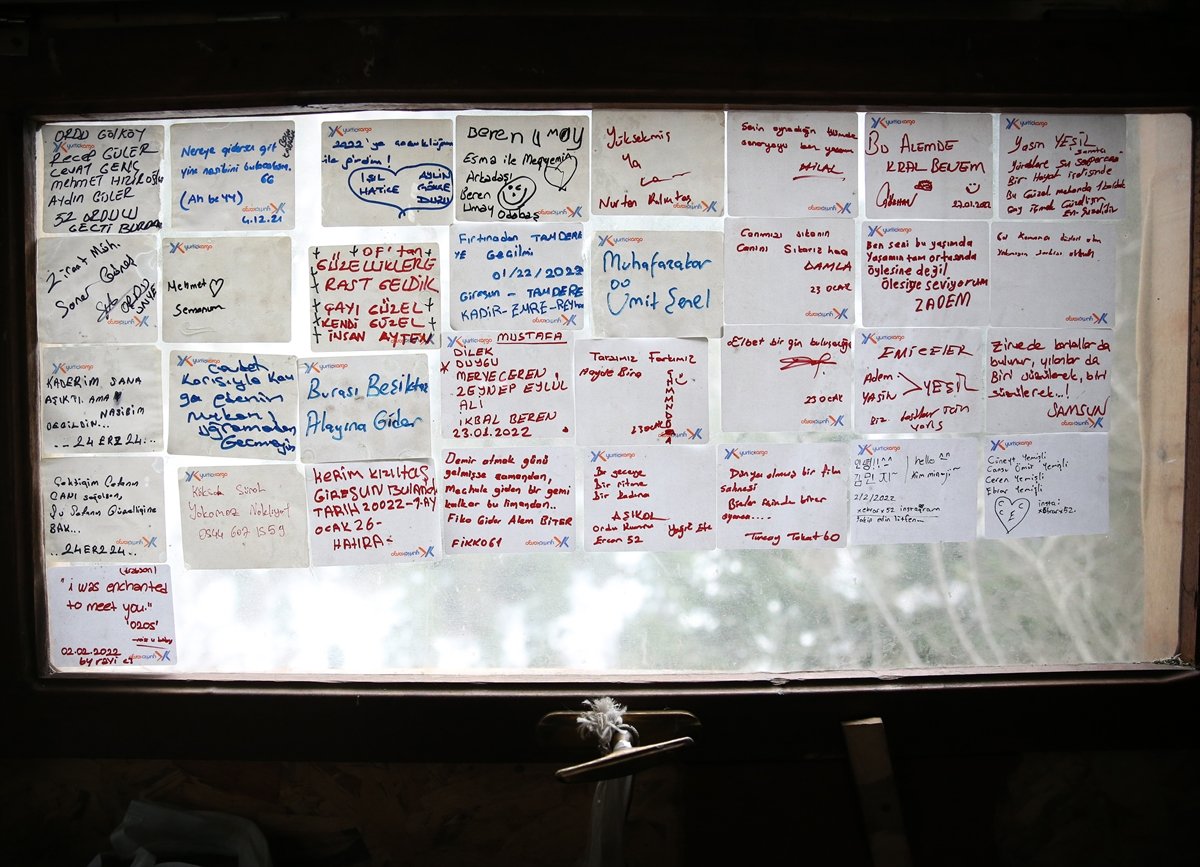 ORDU GÖLKÖY
Recep GÜLER
CEVAT GENÇ
mehmet HIZIROĞLU
Aydın GÜLER
52 ORDULU
GEÇTİ BURDAN
yurtiçikargo
Nereye gidersen git
yine nasibini bulacaksın.
66
(Ah be YY)
4.12.21
yurtiçikargo
2022'ye
ile girdim!
IŞIL
HATİCE
AYLİN
yurtiçikargo
Beren Umay
Esma ile Meryemin
Arkadaşı
Beren
Umay
Odabaş
yurtiçikargo
Yükselmiş
Ya
Nurten
yurtiçikargo
Senin oynadığın
senaryoyu ben yazdım
HİLAL
yurtiçikargo
yurtiçikargo
BU ALEMDE
KRAL BENİM
27.01.2022
yurtiçikargo
Yasin YEŞİL
Bir Hayat
Bu Güzel mekanda
Ziraat Müh.
Soner
ORDU
ÜNYE
yurtiçikargo
yurtiçikargo
Mehmet ♡
Semanur
OF'tan
GÜZELLİKLERE
RAST GELDİK
ÇAYI GÜZEL
KENDİ GÜZEL
İNSAN AYTEN
Fırtınadan TAMDERE
YE Geçilmi
01/22/2022
Giresun - TAMDERE
KADİR-EMRE-REYHAN
yurtiçikargo
yurtiçikargo
Muhafazakar
Ümit Şenel
Canımızı sıkanın
Canını Sıkarız haa
DAMLA
23 OCAK
yurtiçikargo
Ben seni bu yaşımda
Yaşamın tam ortasında
öylesine değil
ölesiye seviyorum
ZADEM
yurtiçikargo
yurtiçikargo
KADERİM SANA
AŞIKTI AMA
NASİBİM
DEĞİLDİN...
..24ERZ24..
yurtiçikargo
yurtiçikargo
Cavbet
Karısıyla Kav
ga edenin
mekanı
uğramadan
Geçmeyin
yurtiçikargo
Burası Beşiktaş
Alayına Gider
yurtiçikargo
MUSTAFA
DİLEK
DUYGU
MERYECEREN
ZEYNEP EYLÜL
ALİ
İKBAL BEREN
23.01.2022
Tarzımız Farkımız
Haydi Bira
ŞAMANDAĞ
23 OCAK
yurtiçikargo
Elbet bir gün buluşacağız
23 OCAK
yurtiçikargo
yurtiçikargo
EMİCELER
Adem
YASİN
YEŞİL
Biz
Zirvede kartallar da
bulunur, yılanlar da
Biri süzülerek, biri
sürünerek...!
SAMSUN
yurtiçikargo
Çektiğim Çilenin
CANI sağolsun,
Şu Salağın Güzelliğine
BAK...
...24ERZ24...
yurtiçikargo
yurtiçikargo
Yakamoz Nakliyat
0544 607 1559
KERİM KIZILTAŞ
GİRESUN BULANCAK
TARİH 20022-1.AY
OCAK 26-
HATIRA-
yurtiçikargo
Demir atmak günü
gelmişse zamandan,
Meçhule giden bir gemi
kalkar bu limandan..
Fiko Gider Alem BİTER
FİKKO61
yurtiçikargo
yurtiçikargo
Bu geceye
Bir ritme
Bir kadına
AŞIKOL
Ordu
Ercan 52
Yiğit Efe
yurtiçikargo
Dünya olmuş bir film
sahnesi
Bizler
oyuncu...
Tuncay Tokat 60
yurtiçikargo
안녕!^^
김민지
hello ^^
kim minji
2/2/2022
xebrarx52 instagram
takip edin lütfen...
yurtiçikargo
yurtiçikargo
Cüneyt Yemişli
Cansu Ömür Yemişli
Ceren Yemişli
Ebrar Yemişli
C C
C E
insta:
xebrarx52.
(trabzon)
"i was enchanted
to meet you."
'0205'
02.02.2022
yurtiçikargo